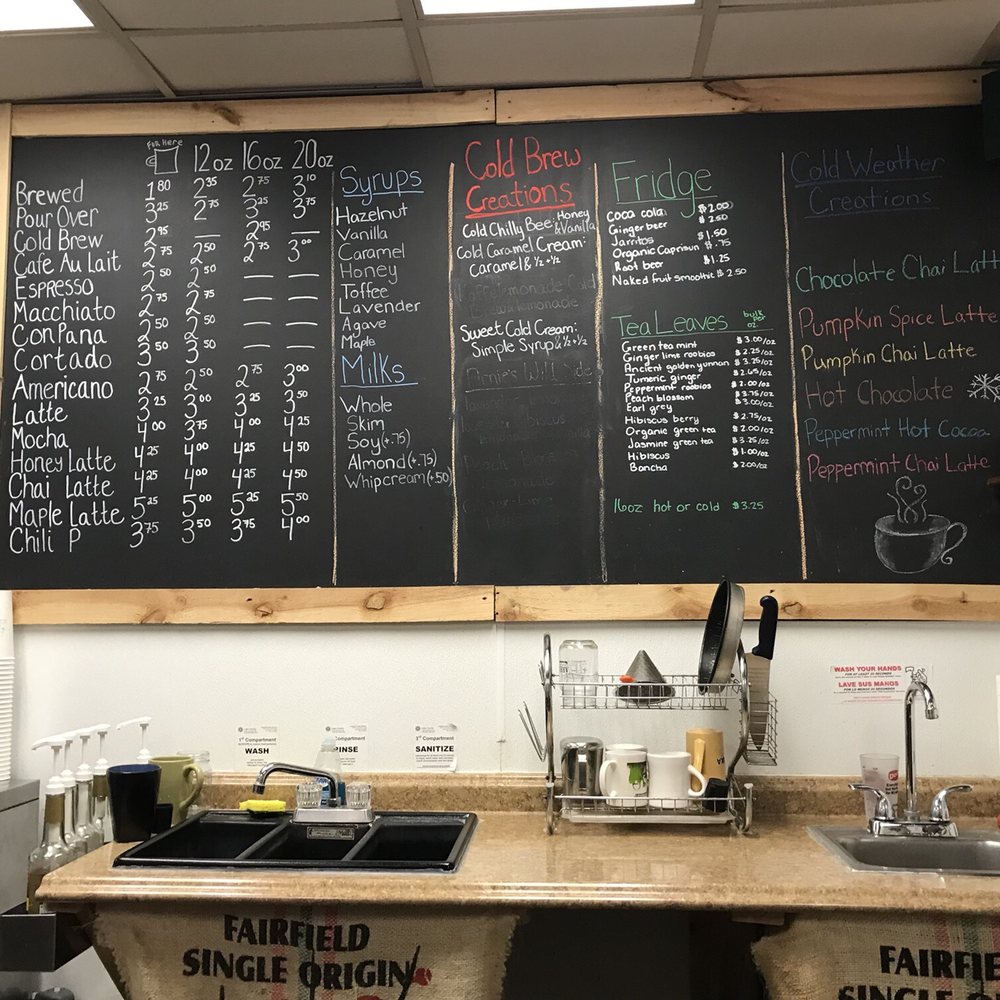 For Here 12oz 16oz 20oz
Brewed 1.80 2.35 2.75 3.10
Pour Over 3.25 2.75 3.25 3.75
Cold Brew 2.95 2.95
Cafe Au Lait 2.50 2.75 3.00
Espresso 2.50 2.50 — —
Macchiato 2.75 2.75 — —
ConPana 2.50 2.50 — —
Cortado 3.50 3.50 — —
Americano 2.75 2.50 2.75 3.00
Latte 3.25 3.00 3.25 3.50
Mocha 4.00 3.75 4.00 4.25
Honey Latte 4.25 4.00 4.25 4.50
Chai Latte 4.25 4.00 4.25 4.50
Maple Latte 5.25 5.00 5.25 5.50
Chili P 3.75 3.50 3.75 4.00
Syrups
Hazelnut
Vanilla
Caramel
Honey
Toffee
Lavender
Agave
Maple
Milks
Whole
Skim
Soy (+.75)
Almond (+.75)
Whipcream (+.50)
Cold Brew
Creations
Cold Chilly Bee: Honey
& Vanilla
Cold Caramel Cream:
Caramel & ½ + ½
Sweet Cold Cream:
Simple Syrup & ½ + ½
Fridge
Coca cola $2.00
Ginger beer $2.50
Jarritos $1.50
Organic Caprisun $.75
Root beer $1.25
Naked fruit smoothie $2.50
Tea Leaves bulk per oz.
Green tea mint $3.00/oz
Ginger lime rooibios $2.25/oz
Ancient golden yunnan $3.25/oz
Tumeric ginger $2.65/oz
Peppermint rooibios $2.00/oz
Peach blossom $3.75/oz
Earl grey $3.00/oz
Hibiscus berry $2.75/oz
Organic green tea $2.00/oz
Jasmine green tea $3.25/oz
Hibiscus $1.00/oz
Boncha $2.00/oz
16oz hot or cold $3.25
Cold Weather
Creations
Chocolate Chai Latt
Pumpkin Spice Latte
Pumpkin Chai Latte
Hot Chocolate
Peppermint Hot Cocoa
Peppermint Chai Latte
WASH YOUR HANDS
FOR AT LEAST 20 SECONDS
LAVE SUS MANOS
POR LO MENOS 20 SECONDS
1st Compartment
WASH
Compartment
RINSE
3rd Compartment
SANITIZE
FAIRFIELD
SINGLE ORIGIN
FAIRFIE
SINGLE ORIGIN